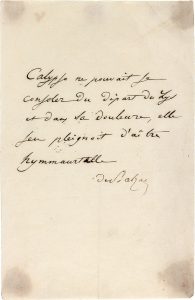 Calypso ne pouvait se
consoler du départ de Lys
et dans sa douleure, elle
sen pleignoit d'aître
hymmaurtelle
de Balzac